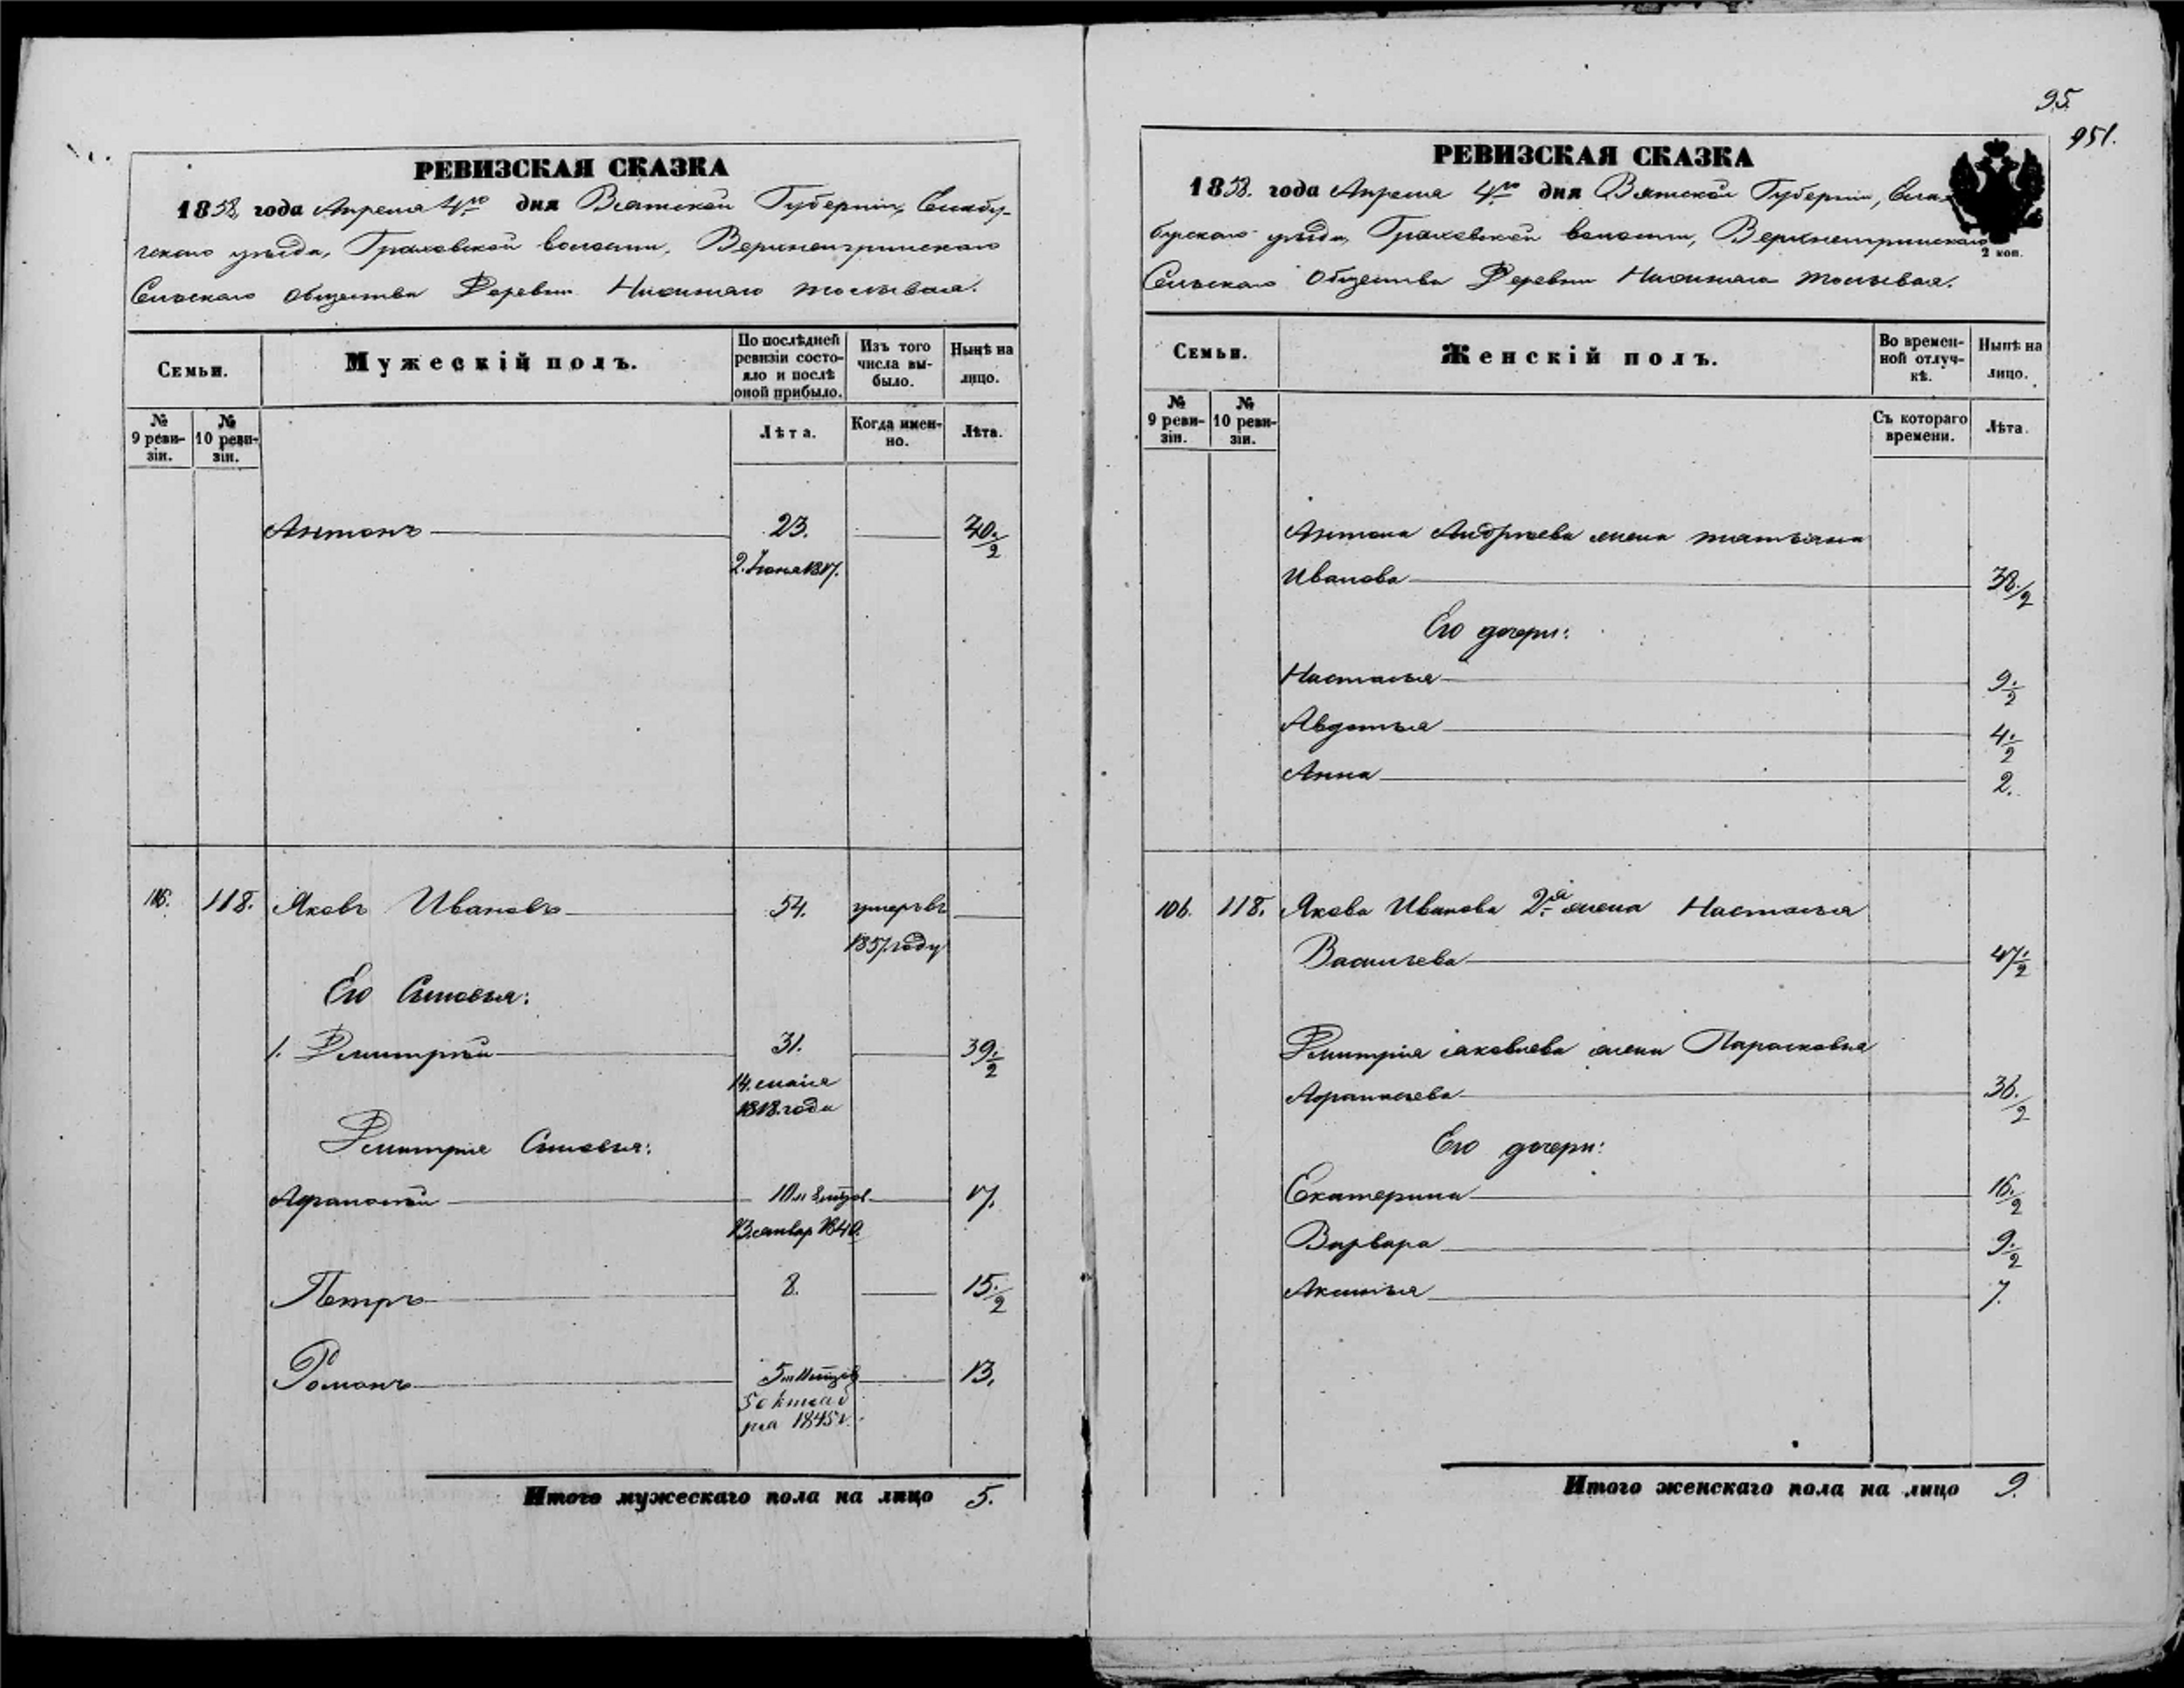 РЕВИЗСКАЯ СКАЗКА
1858 года Апреля 4го дня Вятской Губерніи, Елабу-
жскаго уѣзда, Граховской волости,
Сельскаго Общества Деревни Нижняго
Семьи.
Мужескій полъ.
По послѣдней ревизіи состо-
яло и послѣ
оной прибыло.
Изъ того
числа вы-
было.
Нынѣ на
лицо.
№
9 реви-
зіи.
№
10 реви-
зіи.
Лѣта.
Когда имен-
но.
Лѣта.
Антонъ 23. 40½
2. Іюня 1817.
106. 118. Яковъ Ивановъ 54. умеръ въ
1857 году
Его Сыновья:
1. Дмитрій 31. 39½
14. мая
1818 года
Дмитрія Сыновья:
Афанасій 10 17.
13. январ 1840.
Петръ 8. 15½
Романъ 5 13.
5 октяб
ря 1845 г.
Итого мужескаго пола на лицо 5.
95.
951.
РЕВИЗСКАЯ СКАЗКА
1858. года Апреля 4го дня Вятской Губерніи, Ела-
бужскаго уѣзда, Граховской волости,
2 коп.
Сельскаго Общества Деревни Нижняго
Семьи.
Женскій полъ.
Во времен-
ной отлуч-
кѣ.
Нынѣ на
лицо.
№
9 реви-
зіи.
№
10 реви-
зіи.
Съ котораго
времени.
Лѣта.
Антона Андреева жена татьяна
Иванова 38½
Его дочери:
Настасья 9½
Авдотья 4½
Анна 2.
106. 118. Якова Иванова 2я жена Настасья
Васильева 47½
Дмитрія яковлева жена Парасковья
Афанасьева 36½
Его дочери:
Екатерина 16½
Варвара 9½
Аксинья 7.
Итого женскаго пола на лицо 9.